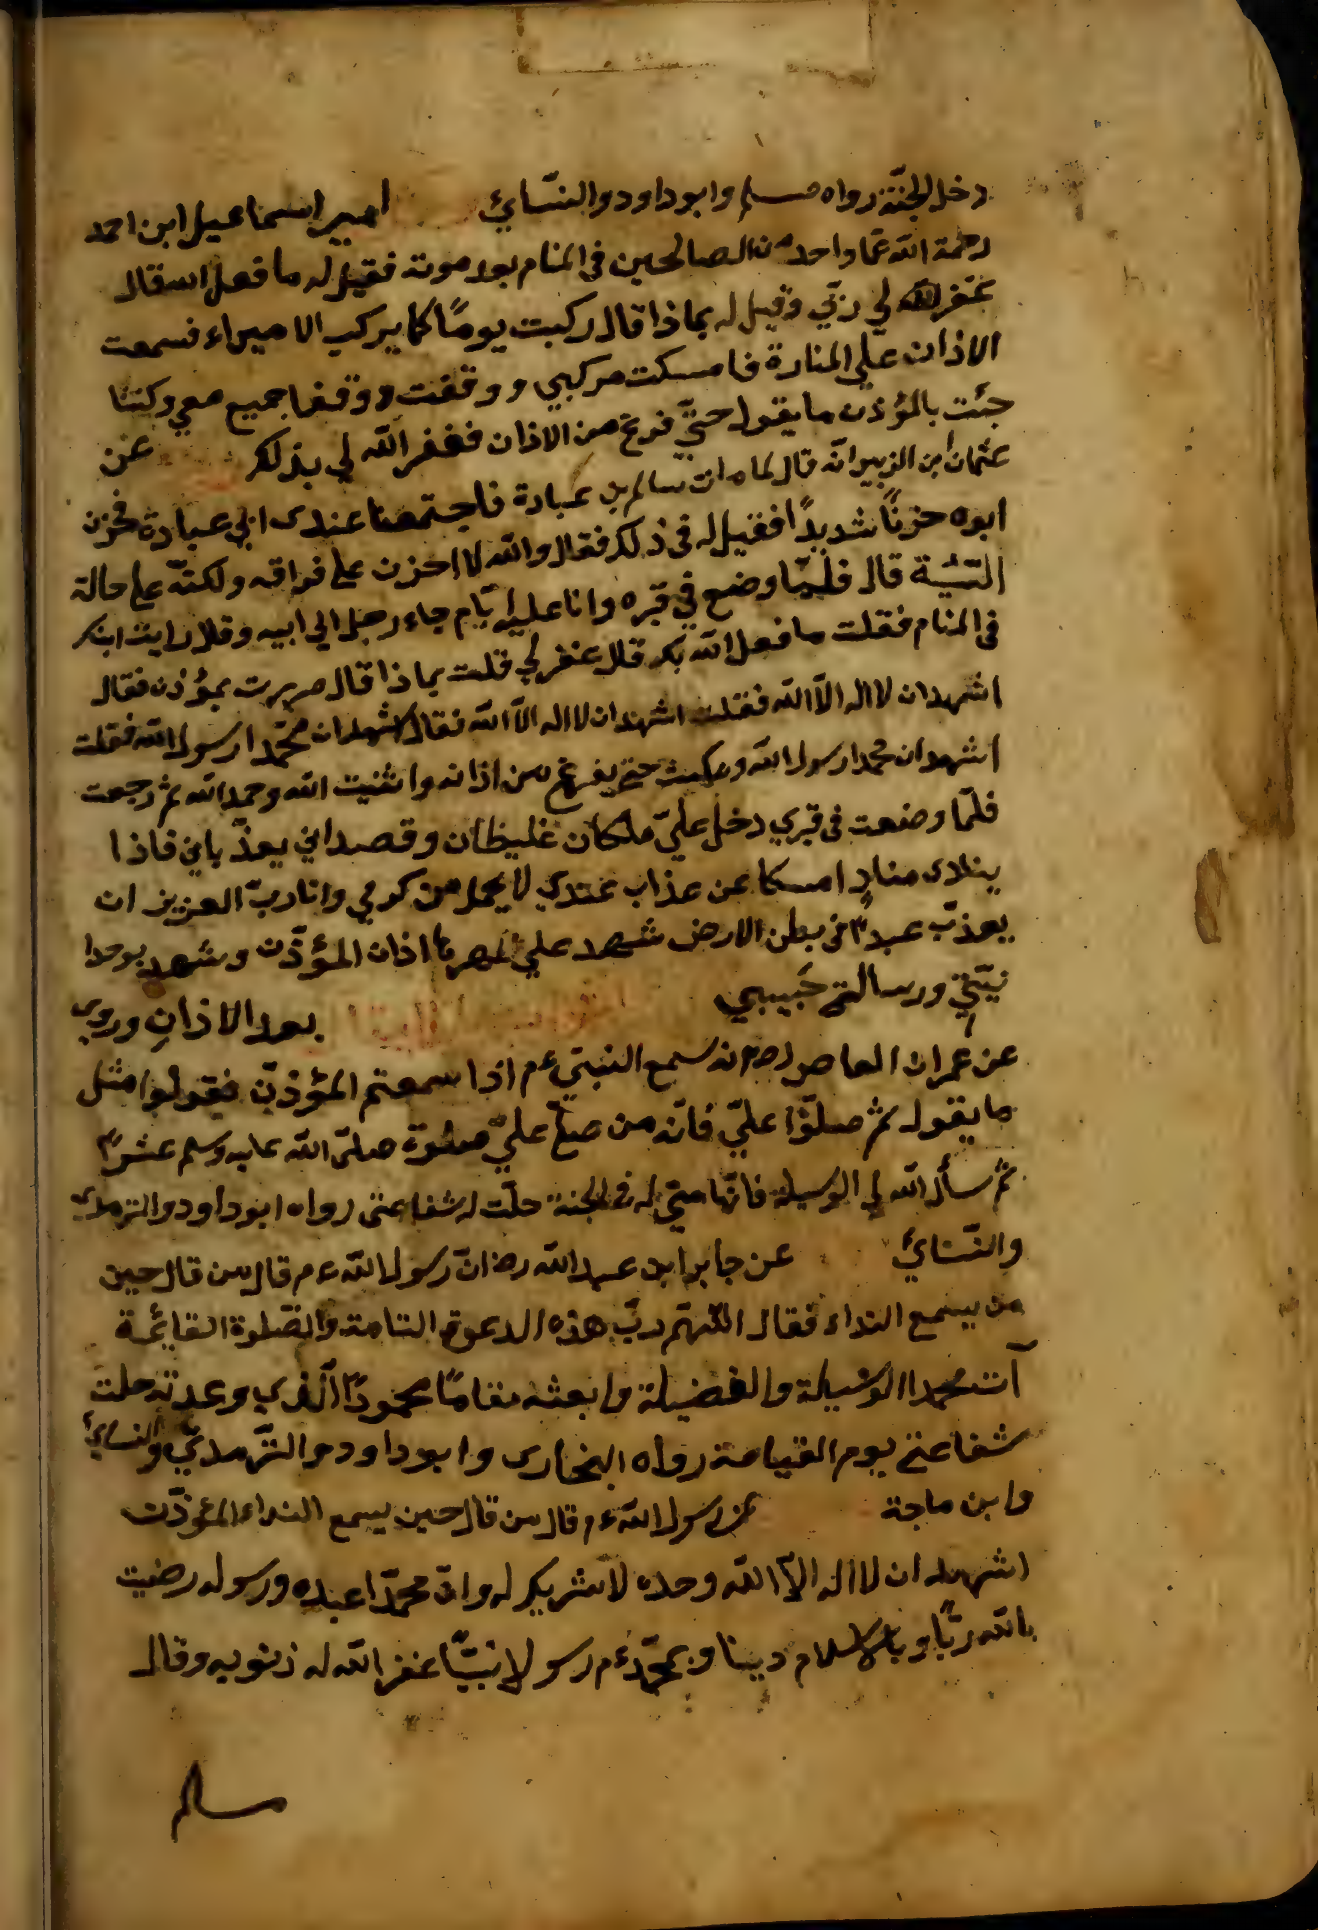 دخل الجنّة رواه مسلم وابوداود والنسّائ امير اسماعيل ابن احمد
رحمة الله واحد من الصالحين فى المنام بعد موته فقيل له ما فعل الله قال
غفر الله لي ربّي وقيل له بماذا قال ركبت يومًا كما يركب الاميراء فسمعت
الاذان علي المنارة فامسكت مركبي ووقفت ووقفا جميع معي وكتنا
جئت بالمؤذن ما يقول حتّي فرغ من الاذان فغفر الله لي بذلك عن
عثمان ابن الزبير انّه قال لما مات سالم بن عبادة فاجتمعنا عندى ابي عبادة فحزن
ابوه حزنًا شديدًا فقيل له فى ذلك فقال والله لا احزن على فراقه ولكنّه على حالة
السّيئة قال فلمّا وضع في قبره وانا عليه ايّام جاء رجل الي ابيه وقال رايت ابنك
فى المنام فقلت ما فعل الله بك قال غفر لي قلت بماذا قال مررت بمؤذن فقال
اشهد ان لا اله الّا الله فقلت اشهد ان لا اله الّا الله فقال اشهد ان محمّدا رسول الله فقلت
اشهد ان محمدا رسول الله ومكثت حتي يفرغ من اذانه واثنيت الله وحمد الله ثم رجعت
فلمّا وضعت فى قبري دخل عليّ ملكان غليظان وقصداني يعذّباني فاذا
ينادى مناد امسكا عن عذاب عندي لا يحمل من كرمي وانا ربّ العزيز ان
يعذّب عبدًا فى بطن الارض شهد علي اذان المؤذّن وشهد بوحدا
نيّتي ورسالة حبيبي بعد الاذانِ وروى
عن عمران العاص رضي انه سمع النبيّ عم اذا سمعتم المؤذّن فقولوا مثل
ما يقول ثم صلّوا عليّ فانّه من صلّ عليّ صلوة صلّى الله عليه وسلم عشرًا
ثم سأل الله لي الوسيلة فانّها حتي له فى الجنة حلّت له شفاعتى رواه ابوداود والترمدي
والنّسّائ عن جابر ابن عبد الله رضي انّ رسول الله عم قال من قال حين
من يسمع النداء فقال اللّهمّ ربّ هذه الدعوة التامة والصّلوة القائمة
آت محمدا الوسيلة والفضيلة وابعثه مقامًا محمودًا الّذي وعدته حلت
شفاعتي يوم القيامة رواه البخارى وابوداود والترّمديّ والنسائ
وابن ماجة عن رسول الله عم قال من قال حين يسمع النداء المؤذّن
اشهد ان لا اله الّا الله وحده لا شريك له وانّ محمّدا عبده ورسوله رضيت
بالله ربًّا وبالاسلام دينا وبمحمّد عم رسولا نبيًّا غفر الله له ذنوبه وقال
مسلم